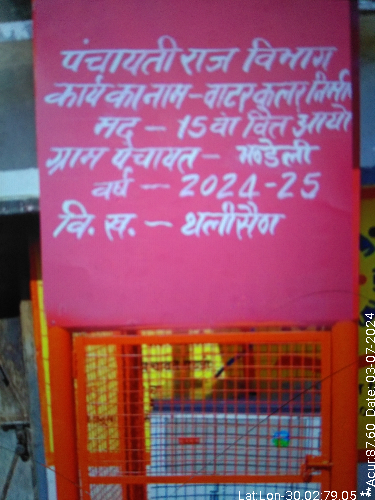 पंचायती राज विभाग
कार्य का नाम - वाटर कूलर निर्मा
मद - 15वां वित्त आयो
ग्राम पंचायत - भण्डेली
वर्ष - 2024-25
वि. ख. - थलीसैण
Lat Lon-30.02:79.05
**Acur:87.60 Date: 03-07-2024